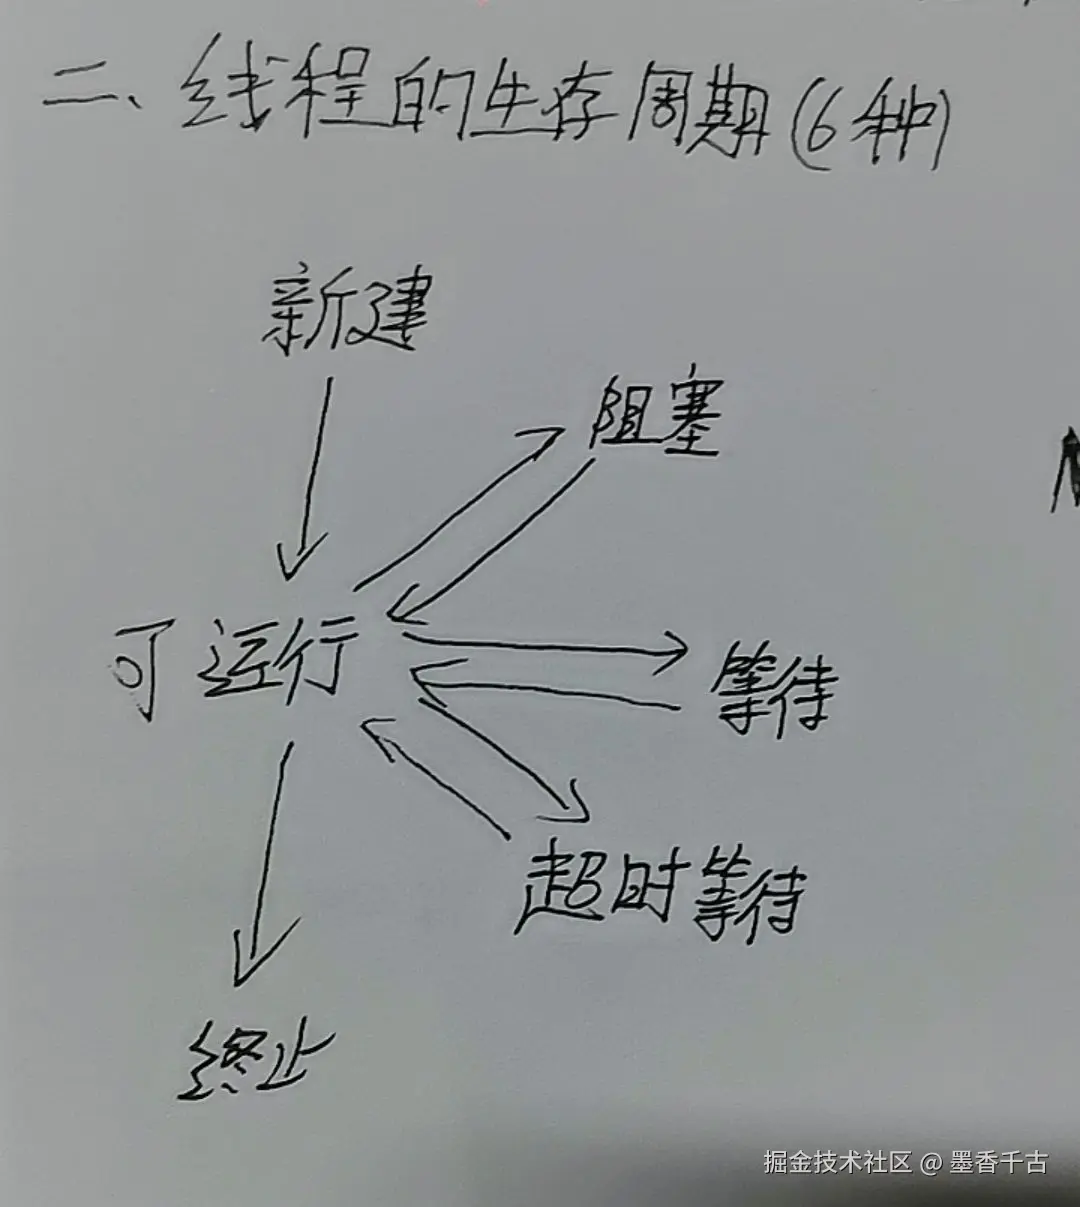 二、线程的生存周期(6种)
新建
阻塞
可运行
等待
超时等待
终止
掘金技术社区 @ 墨香千古